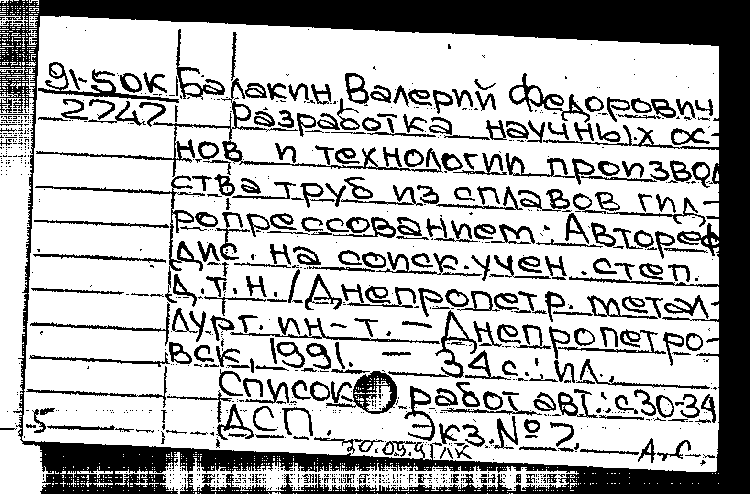 91-50К Балакин, Валерий Федорович
2747 Разработка научных ос-
нов и технологии производ
ства труб из сплавов гид-
ропрессованием: Автореф
дис. на соиск. учен. степ.
д.т.н. / Днепропетр. метал-
лург. ин-т. — Днепропетро-
вск, 1991. — 34 с.: ил.
Список работ авт.: с.30-34
5 ДСП. Экз. № 7.
20.09.91 ЛК А.С.